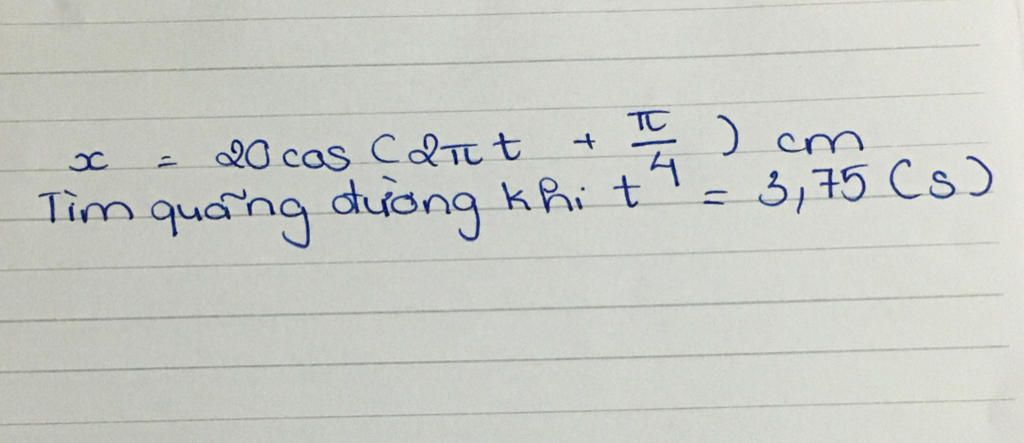 x = 20 cos (2πt + π/4) cm
Tìm quãng đường khi t = 3,75 (s)